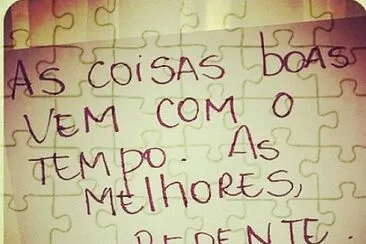 AS COISAS BOAS
VEM COM O
TEMPO. AS
MELHORES,
REPENTE.